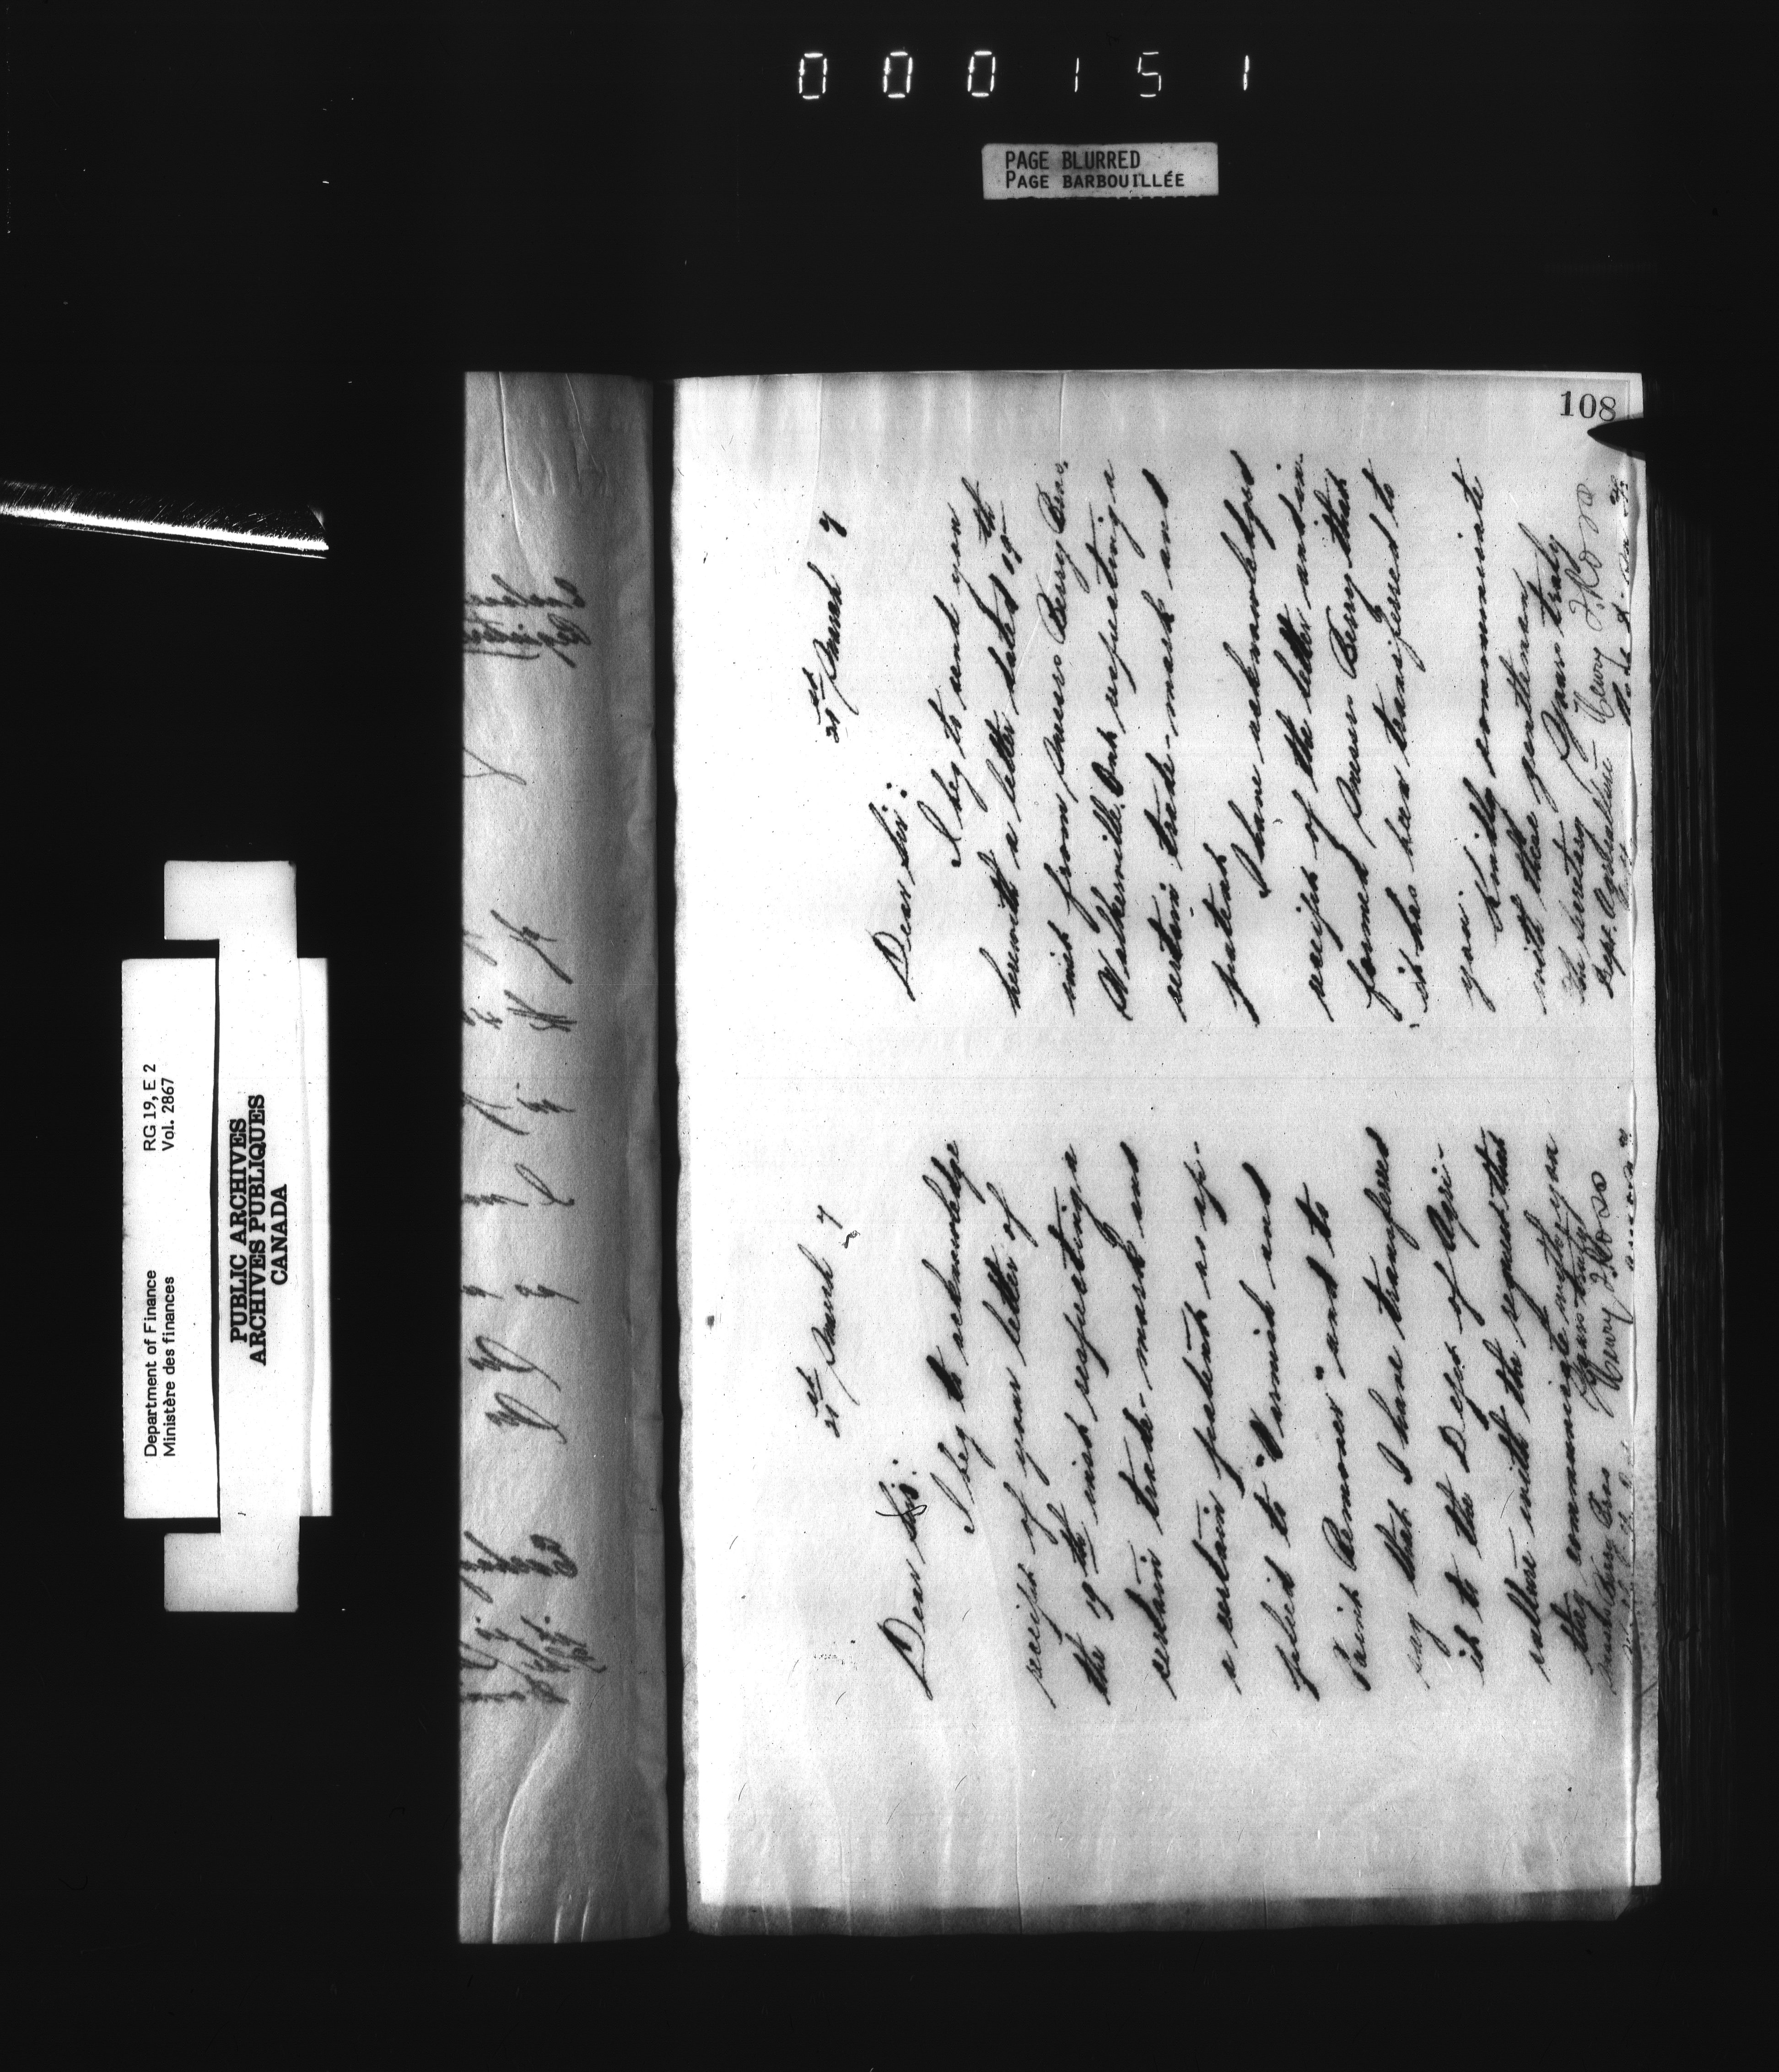 000151
PAGE BLURRED
PAGE BARBOUILLÉE
Department of Finance
Ministère des finances
RG 19, E 2
Vol. 2867
PUBLIC ARCHIVES
ARCHIVES PUBLIQUES
CANADA
108
21st March 7
Dear Sirs:
I beg to acknowledge
receipt of your letter of
the 19th inst respecting a
certain trade-mark and
a certain patent as ap-
plied to "Varnish and
Paint Remover" and to
say that I have transferred
it to the Dept. of Agri-
culture with the request that
they communicate with you
Yours truly
Messrs Berry Bros
Henry T. Ross
21st March 7
Dear Sir:
I beg to send you
herewith a letter dated 19th
inst from Messrs Berry Bros.
Walkerville, Ont respecting a
certain trade-mark and
patent
I have acknowledged
receipt of the letter and in-
formed Messrs Berry that
it has been transferred to
you.
Kindly communicate
with these gentlemen
Yours truly
The Secretary
Henry T. Ross
Dept. Agriculture